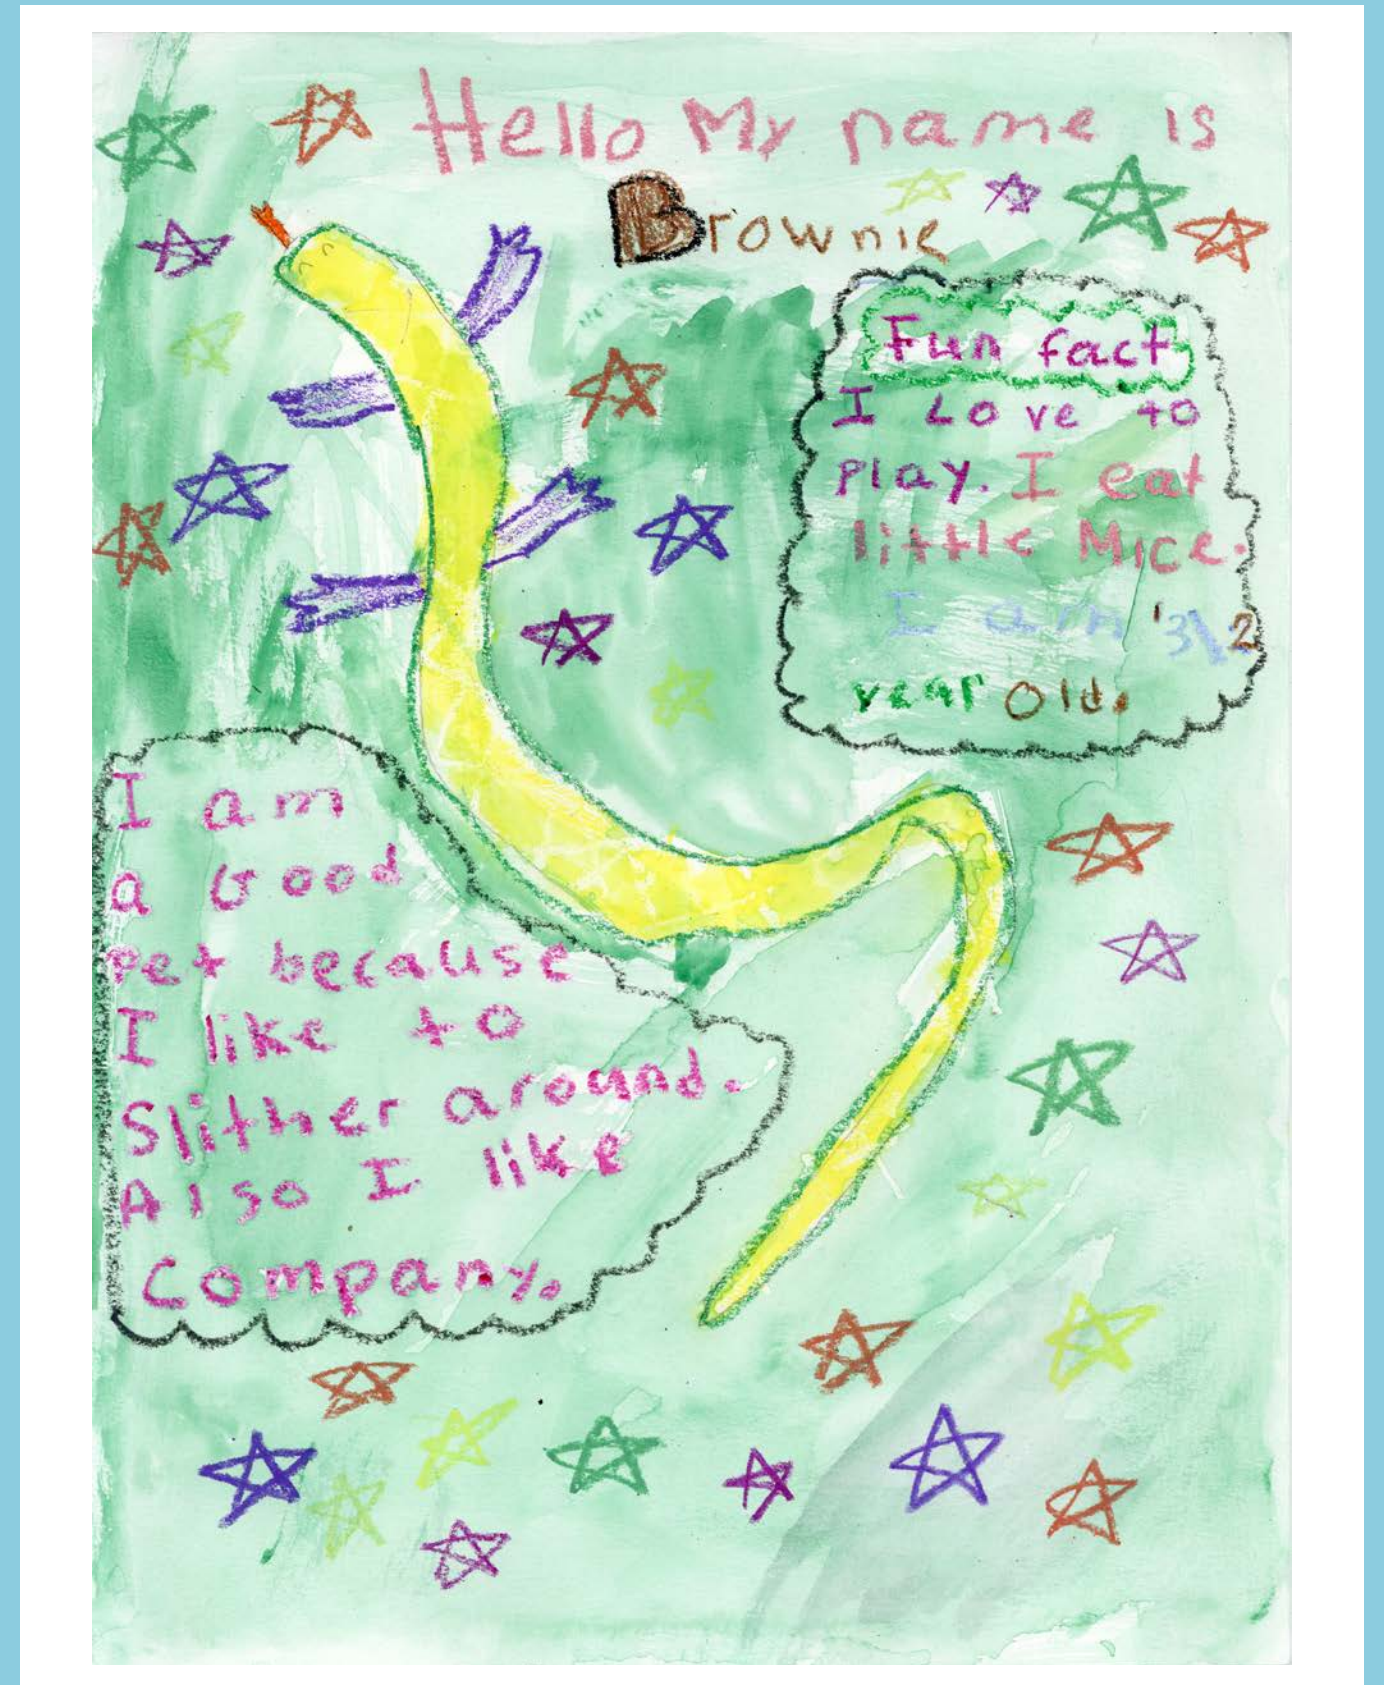 Hello My name is
Brownie
Fun fact
I Love to
play. I eat
little Mice.
I am 3\2
year old.
I am
a Good
pet because
I like to
Slither around.
Also I like
Company.